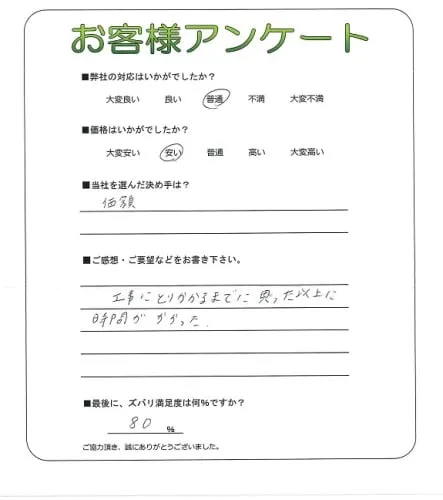 お客様アンケート
■弊社の対応はいかがでしたか？
大変良い 良い 普通 不満 大変不満
■価格はいかがでしたか？
大変安い 安い 普通 高い 大変高い
■当社を選んだ決め手は？
価額
■ご感想・ご要望などをお書き下さい。
工事にとりかかるまでに思った以上に
時間がかかった.
■最後に、ズバリ満足度は何%ですか？
80 %
ご協力頂き、誠にありがとうございました。